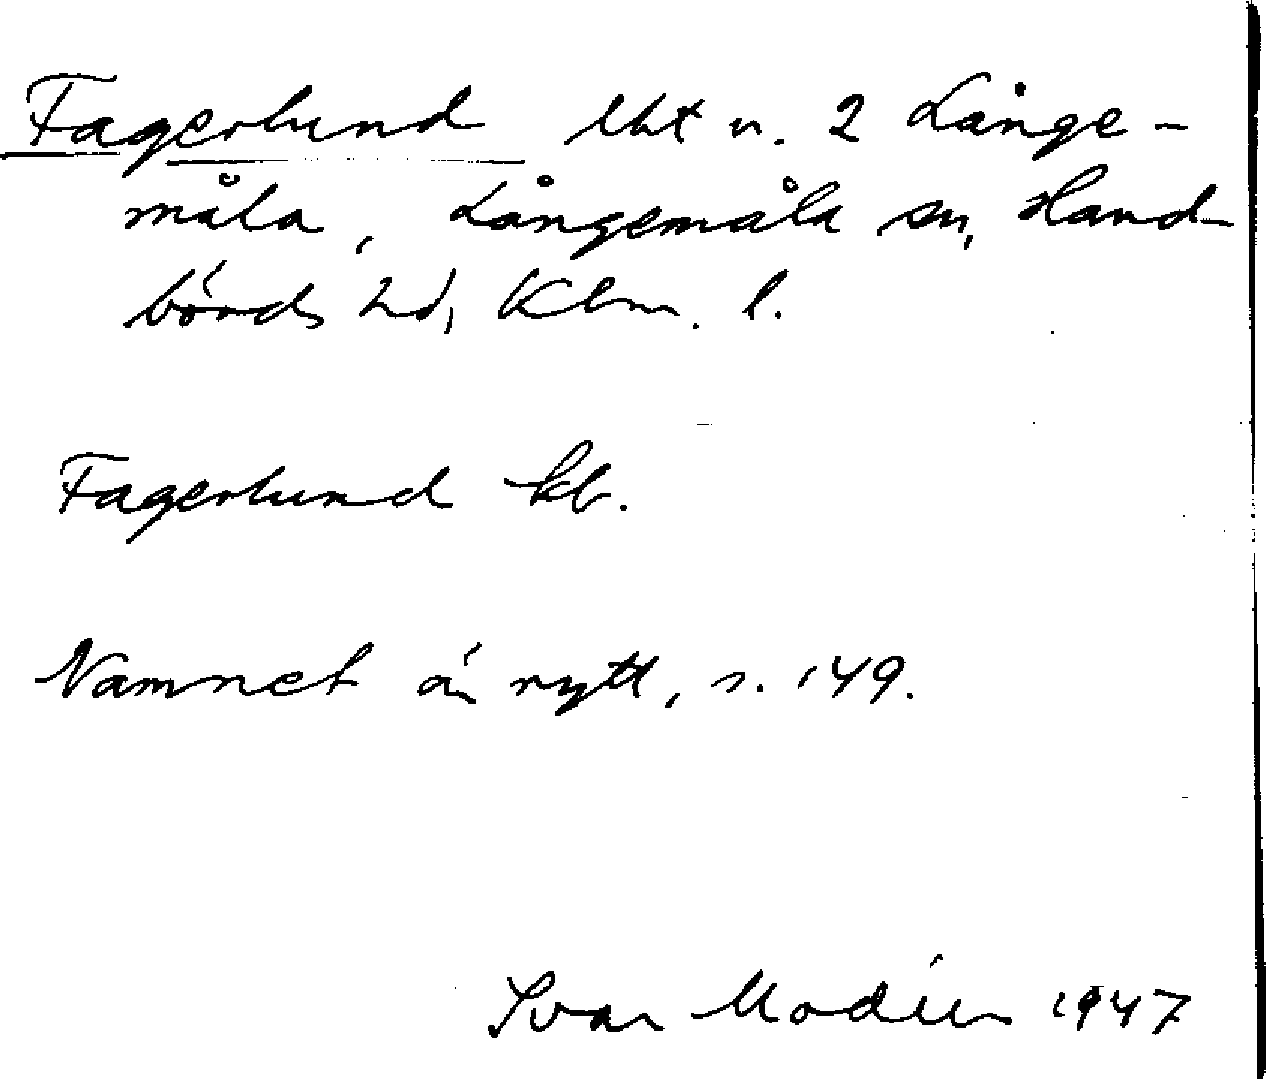 Fagerlund lht u. 2 Långe-
måla, Långemåla sn, Hand-
börds hd, Klm. l.
Fagerlund kb.
Namnet är nytt, s. 149.
Ivar Modéer 1947